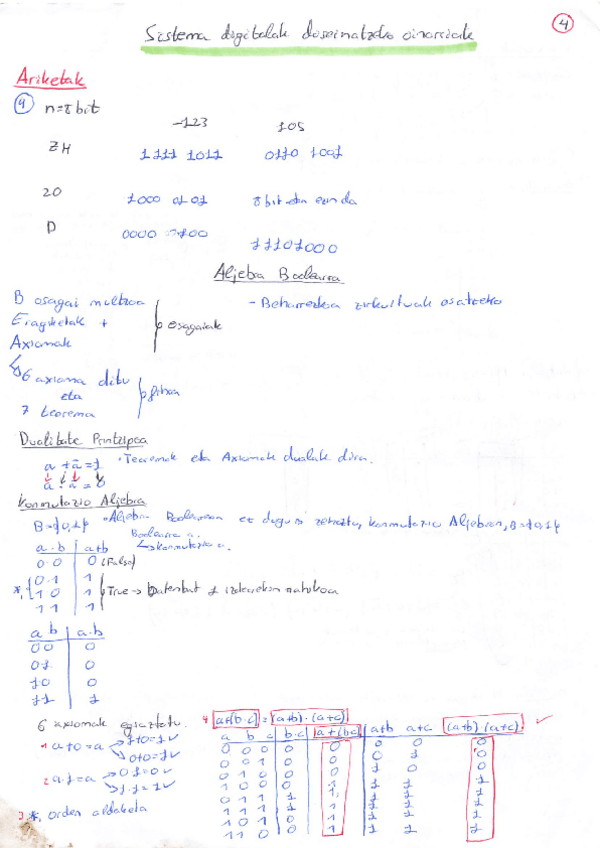 4
Sistema digitalak diseinatzeko oinarriak
Ariketak
4 n=8 bit
-123 105
ZM 1111 1011 0110 1001
2O 1000 0101 8 bit-ekin ezin da
D 0000 0100 11101000
Aljebra Boolearra
B osagai multzoa
Eragiketak +
Axiomak
osagaiak
- Beharrezkoa zirkuituak osatzeko
6 axioma ditu
eta
7 teorema
Dualitate Printzipoa
a + ā = 1 • Teoremak eta Axiomak dualak dira.
a · ā = 0
Konmutazio Aljebra
B={0,1} • Aljebra Boolearrean ez dugu zehaztu, konmutazio Aljebran, B={0,1}
Boolearra a.
↳ konmutazio a.
a·b | a+b
0·0 | 0 (False)
0·1 | 1
*, 1 0 | 1 True →
1 1 | 1
a b | a·b
0 0 | 0
0 1 | 0
1 0 | 0
1 1 | 1
6 axiomak egiaztatu.
1 a+0=a → 1+0=1 ✓
→ 0+0=0 ✓
2 a·1=a → 0·1=0 ✓
→ 1·1=1 ✓
3 *, orden aldaketa
4 a+(b·c) = (a+b)·(a+c)
a b c | b·c | a+(bc) | a+b a+c | (a+b)·(a+c) ✓
0 0 0 | 0 | 0 | 0 0 | 0
0 0 1 | 0 | 0 | 0 1 | 0
0 1 0 | 0 | 0 | 1 0 | 0
1 0 0 | 0 | 1 | 1 1 | 1
0 1 1 | 1 | 1 | 1 1 | 1
1 1 1 | 1 | 1 | 1 1 | 1
1 0 1 | 0 | 1 | 1 1 | 1
1 1 0 | 0 | 1 | 1 1 | 1